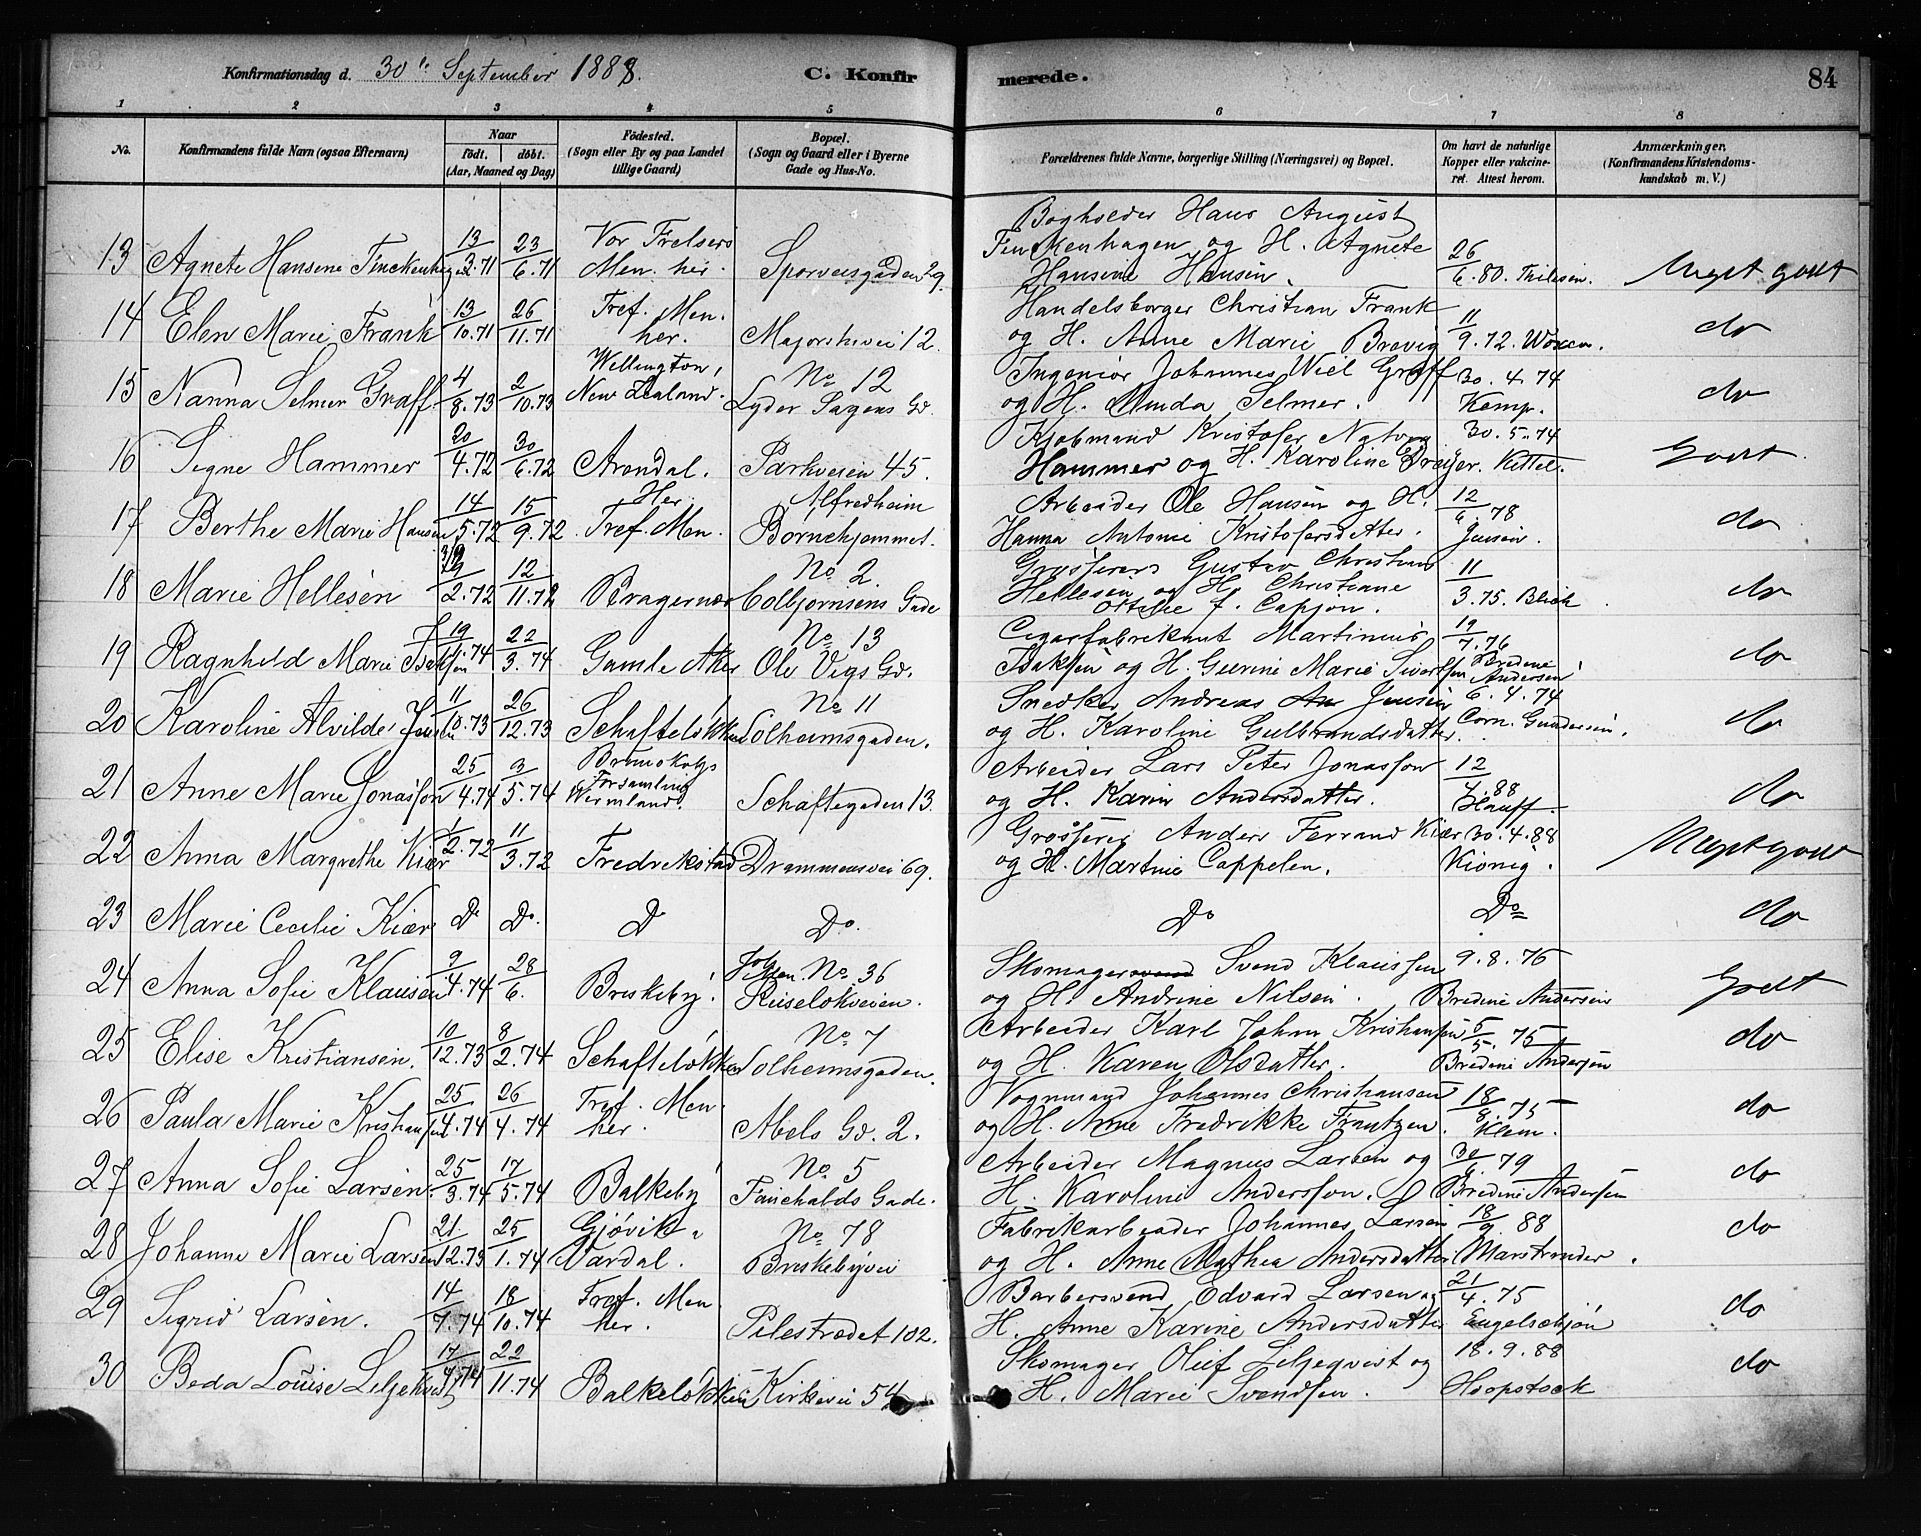 Konfirmationsdag d. 30te September 1888. C. Konfirmerede. 84
1 2 3 4 5 6 7 8
No. Konfirmandens fulde Navn (ogsaa Efternavn) Naar født. døbt. (Aar, Maaned og Dag) Fødested. (Sogn eller By og paa Landet tillige Gaard) Bopæl. (Sogn og Gaard eller i Byerne Gade og Hus-No. Forældrenes fulde Navne, borgerlige Stilling (Næringsvei) og Bopæl. Om havt de naturlige Kopper eller vakcineret. Attest herom. Anmærkninger. (Konfirmandens Kristendomskundskab m. V.)
Vor Frelsers Bogholder Hans August
13 Agnete Hansine Finckenhagen 13/3.71 23/6.71 Men. her. Sporveisgaden 29. Finckenhagen og H. Agnete
Hansine Hansen. 26/6.80. Thilesen. Meget godt
Tref. Men. Handelsborger Christian Frank
14 Elen Marie Frank 13/10.71 26/11.71 her. Majorstuvei 12. og H. Anne Marie Brevig 11/9.72. Woxen. do
Wellington, No 12 Ingeniør Johannes Wiel Graff 30.4.74
15 Nanna Selmer Graff. 4/8.73 2/10.73 New Zealand. Lyder Sagens Gd. og H. Minda Selmer. Kemp. do
Kjøbmand Kristofer Natvig 30.5.74
16 Signe Hammer 20/4.72 30/6.72 Arendal. Parkveien 45. Hammer og H. Karoline Dreijer. Kittel. Godt.
Her Alfredheim Arbeider Ole Hansen og H. 12/6.78
17 Berthe Marie Hansen 14/5.72 15/9.72 Tref. Men. Børnehjemmet. Hanna Antonie Kristofersdatter. Jensen. do
No 2. Grosserer Gustav Christian
18 Marie Hellesen 2.72 12/11.72 Bragernæs Colbjørnsens Gade Hellesen og H. Christiane 11/3.75. Blich do
Ottilie f. Cappon.
No 13 Cigarfabrikant Martinius 19/7.76
19 Ragnhild Marie Isaksen 19/1.74 22/3.74 Gamle Aker Ole Vigs Gd. Isaksen og H. Gurine Marie Sivertsen Bredine Andersen do
No 11 Snedker Andreas Jensen 6.4.74
20 Karoline Alvilde Jensen 11/10.73 26/12.73 Schafteløkken Solheimsgaden. og H. Karoline Gulbrandsdatter. Corn. Gundersen. do
Brunskogs Arbeider Lars Peter Jonasson 12/7.88
21 Anne Marie Jonasson 25/4.74 3/5.74 Forsamling Wermland. Schaftegaden 13. og H. Karin Andersdatter. Hauff do
Grosserer Anders Ferrand Kiær 30.4.88
22 Anna Margrethe Kiær 1/2.72 11/3.72 Fredrikstad Drammensvei 69. og H. Martine Cappelen. Kionig. Meget godt
23 Marie Cecilie Kiær Do Do. Do Do. Do Do do
No 36 Skomagersvend Svend Klaussen 9.8.76
24 Anna Sofie Klausen 9/4.74 28/6. Briskeby. Ruseløkveien. og H. Andrine Nilsen. Bredine Andersen Godt
No 7 Arbeider Karl Johan Kristiansen 6/5.75
25 Elise Kristiansen. 10/12.73 8/2.74 Schafteløkken Solheimsgaden. og H. Karen Olsdatter. Bredine Andersen do
Tref. Men. Vognmand Johannes Christiansen 18/8.75
26 Paula Marie Kristiansen 25/4.74 26/4.74 her. Abels Gd. 2. og H. Anne Fredrikke Frantzen. Klem. do
No 5 Arbeider Magnus Larsen og 30/6.79
27 Anna Sofie Larsen. 25/3.74 17/5.74 Balkeby Fauchalds Gade. H. Karoline Andersson. Bredine Andersen do
Gjøvik, No 78 Fabrikarbeider Johannes Larsen 18/9 88
28 Johanne Marie Larsen 21/12.73 25/1.74 Vardal. Briskebyvei og H. Anne Mathea Andersdatter Marstrander. do
Tref. Men. Barbersvend Edvard Larsen og 21/4.75
29 Sigrid Larsen. 14/7.74 18/10.74 her. Pilestrædet 102. H. Anne Karine Andersdatter Engelschjøn do
Skomager Oluf Liljeqvist og 18.9.88
30 Beda Louise Liljekvist 17/9.74 22/11.74 Balkeløkken Kirkevei 54 H. Marie Svendsen. Hoopstock do